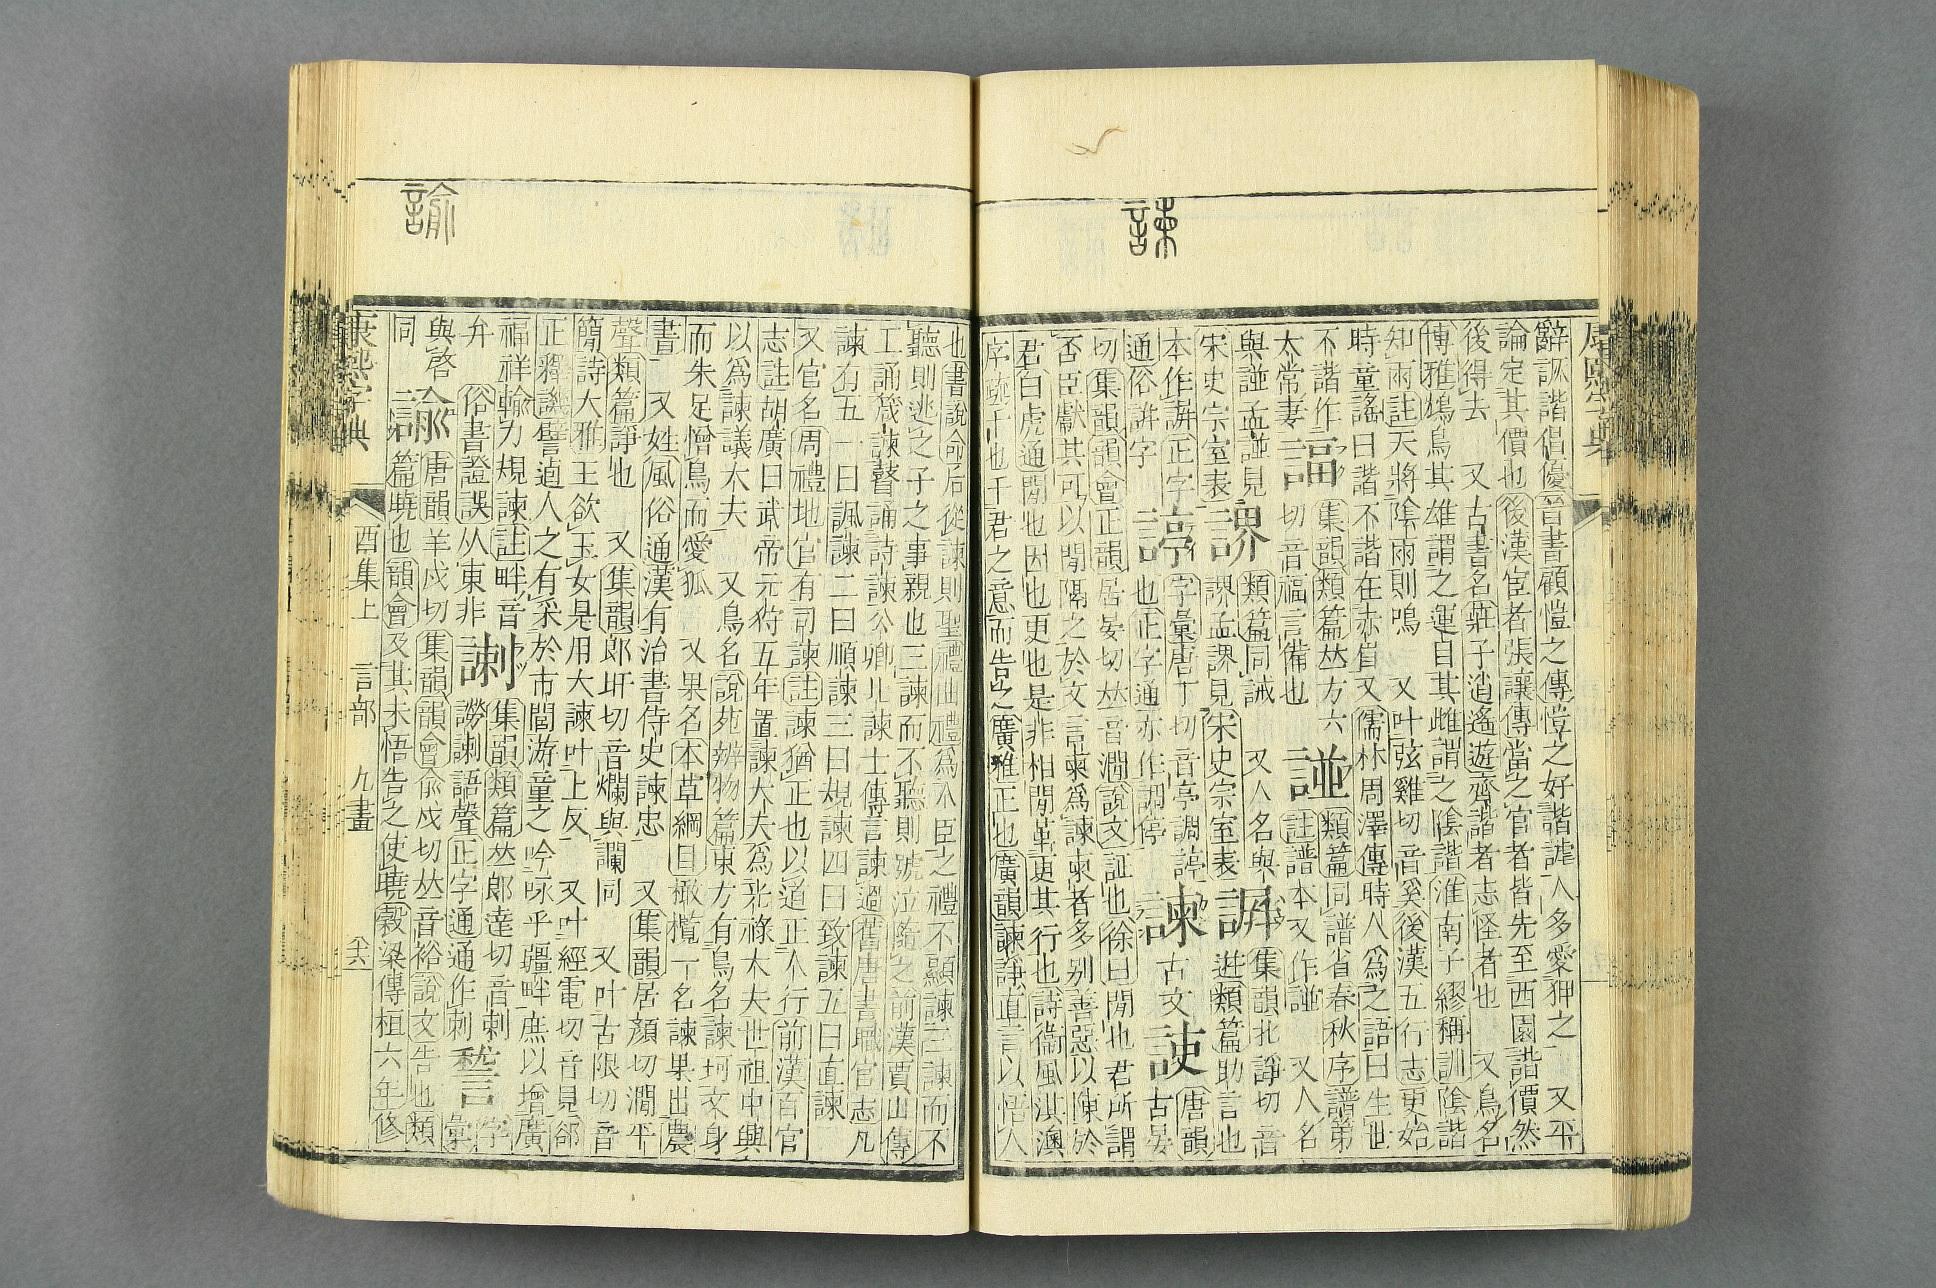 諫
康熙字典
辭詼諧倡優晉書顧愷之傳愷之好諧謔人多愛狎之 又平
論定其價也後漢宦者張讓傳當之官者皆先至西園諧價然
後得去 又古書名莊子逍遙遊齊諧者志怪者也 又鳥名
博雅鴆鳥其雄謂之運日其雌謂之陰諧淮南子繆稱訓陰諧
知雨註天將陰雨則鳴 又叶弦雞切音奚後漢五行志更始
時童謠曰諧不諧在赤眉又儒林周澤傳時人爲之語曰生世
不諧作 諨 集韻類篇𠀤方六 諩 類篇同譜省春秋序譜第
太常妻 切音福言備也 註譜本又作諩 又人名
與諩孟諩見 類篇同誡 又人名與 集韻北諍切音
宋史宗室表 孟 見宋史宗室表 迸類篇助言也
本作 正字 諪 字彙唐丁切音亭調諪 諫 古文 唐韻
通俗 字 也正字通亦作調停 古晏
切集韻韻會正韻居晏切𠀤音澗說文証也徐曰閒也君所謂
否臣獻其可以閒隔之於文言柬爲諫柬者多别善惡以陳於
君白虎通閒也因也更也是非相閒革更其行也詩衞風淇澳
序箋干也干君之意而告之廣雅正也廣韻諫諍直言以悟人
諭
也書說命后從諫則聖禮曲禮爲人臣之禮不顯諫三諫而不
聽則逃之子之事親也三諫而不聽則號泣隨之前漢賈山傳
工誦箴諫瞽誦詩諫公卿比諫士傳言諫過舊唐書職官志凡
諫有五一曰諷諫二曰順諫三曰規諫四曰致諫五曰直諫
又官名周禮地官有司諫註諫猶正也以道正人行前漢百官
志註胡廣曰武帝元狩五年置諫大夫爲光祿大夫世祖中興
以爲諫議大夫 又鳥名說苑辨物篇東方有鳥名諫珂文身
而朱足憎鳥而愛狐 又果名本草綱目橄欖一名諫果出農
書 又姓風俗通漢有治書侍史諫忠 又集韻居顏切澗平
聲類篇諍也 又集韻郎旰切音爛與讕同 又叶古限切音
簡詩大雅王欲玉女是用大諫叶上反 又叶經電切音見郤
正釋譏譬遒人之有采於市閭游童之吟咏乎疆畔庶以增廣
福祥輸力規諫註畔音 集韻類篇𠀤郎達切音剌 字
弁 俗書證誤从東非 語聲正字通通作剌 彙
與啓 諭 唐韻羊戍切集韻韻會俞戍切𠀤音裕說文告也類
同 篇曉也韻會及其未悟告之使曉穀梁傳桓六年修
康熙字典 酉集上 言部 九畫